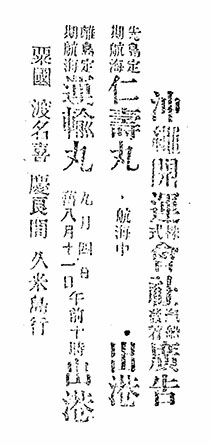 沖繩開運株式會社汽船發着廣告
先島定期航海 仁壽丸 、航海中 、出港
離島定期航海 運輸丸 九月四日舊八月十一日午前十時 出港
粟國 渡名喜 慶良間 久米島行